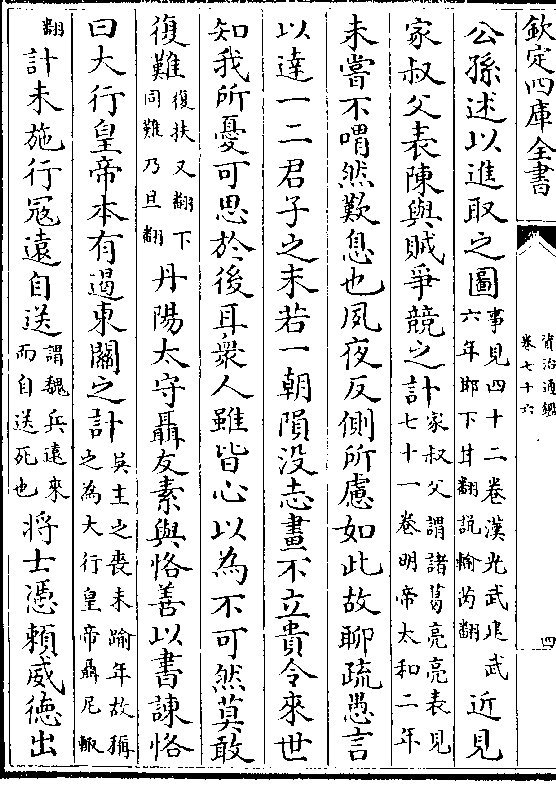 欽定四庫全書
資治通鑑
卷七十六
四
公孫述以進取之圖事見四十二卷漢光武建武六年邯下甘翻說輸芮翻近見
家叔父表陳與賊爭競之計家叔父謂諸葛亮亮表見七十一卷明帝太和二年
未嘗不喟然歎息也夙夜反側所慮如此故聊疏愚言
以達一二君子之末若一朝隕没志畫不立貴令來世
知我所憂可思於後耳衆人雖皆心以為不可然莫敢
復難復扶又翻下同難乃旦翻丹陽太守聶友素與恪善以書諫恪
曰大行皇帝本有遏東關之計吳主之喪未踰年故稱之為大行皇帝聶尼輒翻
計未施行寇遠自送謂魏兵遠來而自送死也將士憑賴威德出